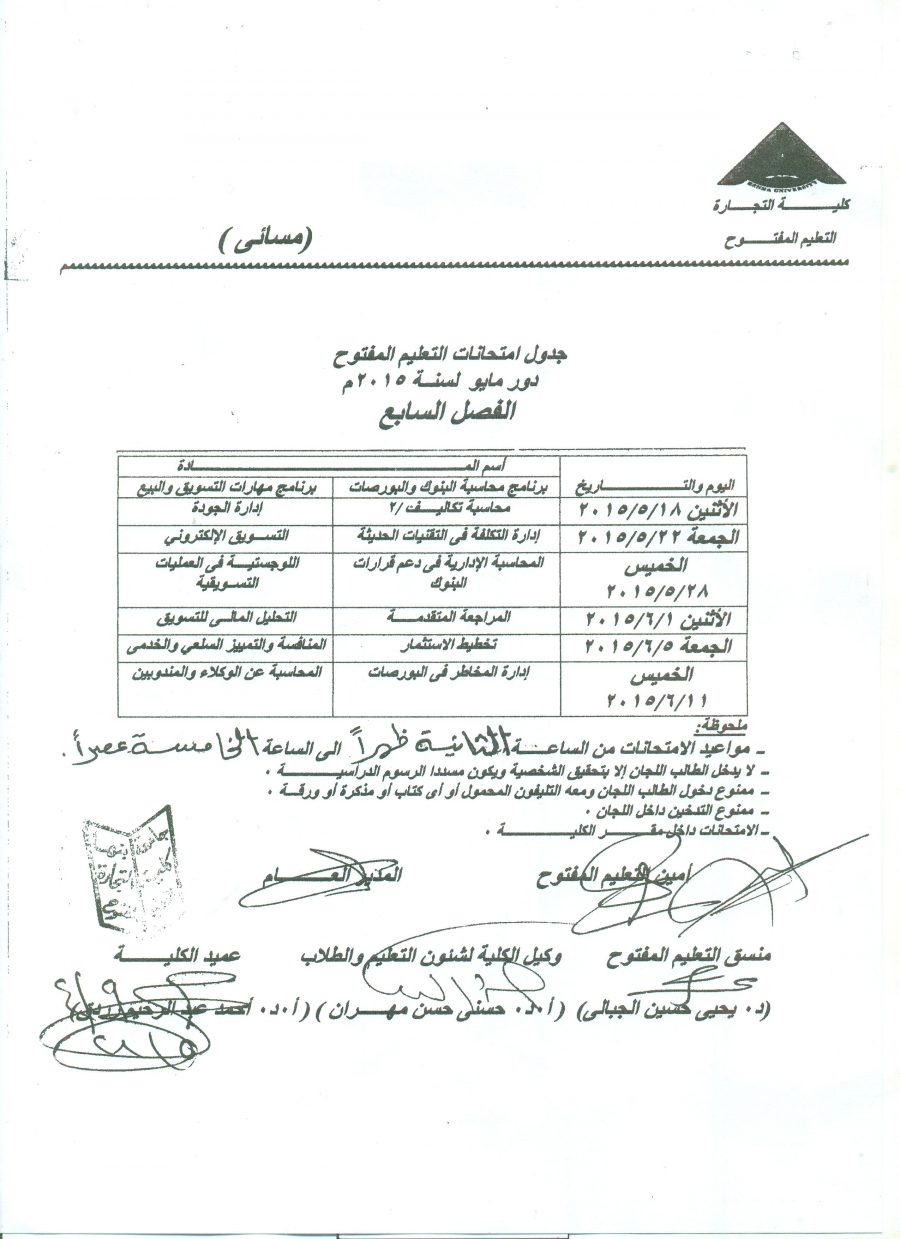 BENHA UNIVERSITY
كليـــة التجـــارة
التعليم المفتـــوح
(مسائى)
جدول امتحانات التعليم المفتوح
دور مايو لسنـة ٢٠١٥م
الفصل السابع
اليوم والتـــاريخ
أسم المـــادة
برنامج محاسبة البنوك والبورصات
برنامج مهارات التسويق والبيع
الأثنين ٢٠١٥/٥/١٨
محاسبة تكاليـف /٢
إدارة الجودة
الجمعة ٢٠١٥/٥/٢٢
إدارة التكلفة فى التقنيات الحديثة
التسويق الإلكتروني
الخميس
٢٠١٥/٥/٢٨
المحاسبة الإدارية فى دعم قرارات
البنوك
اللوجستيـة فى العمليات
التسويقية
الأثنين ٢٠١٥/٦/١
المراجعة المتقدمـة
التحليل المالى للتسويق
الجمعة ٢٠١٥/٦/٥
تخطيط الاستثمار
المنافسة والتمييز السلعي والخدمى
الخميس
٢٠١٥/٦/١١
إدارة المخاطر فى البورصات
المحاسبة عن الوكلاء والمندوبين
ملحوظة:
ـ مواعيد الامتحانات من الساعـة الثانية ظهراً الى الساعة الخامسة عصراً.
ـ لا يدخل الطالب اللجان إلا بتحقيق الشخصية ويكون مسددا الرسوم الدراسيـــة ٠
ـ ممنوع دخول الطالب اللجان ومعه التليفون المحمول أو أى كتاب أو مذكرة أو ورقـة ٠
ـ ممنوع التدخين داخل اللجان ٠
ـ الامتحانات داخل مقـــر الكليـــة ٠
أمين التعليم المفتوح
المدير العـــام
منسق التعليم المفتوح
وكيل الكلية لشئون التعليم والطلاب
عميد الكليـــة
(د٠ يحيى حسين الجبالى)
(أ٠د٠ حسنى حسن مهـران)
(أ٠د٠ أحمد عبد الرحيم زردق)